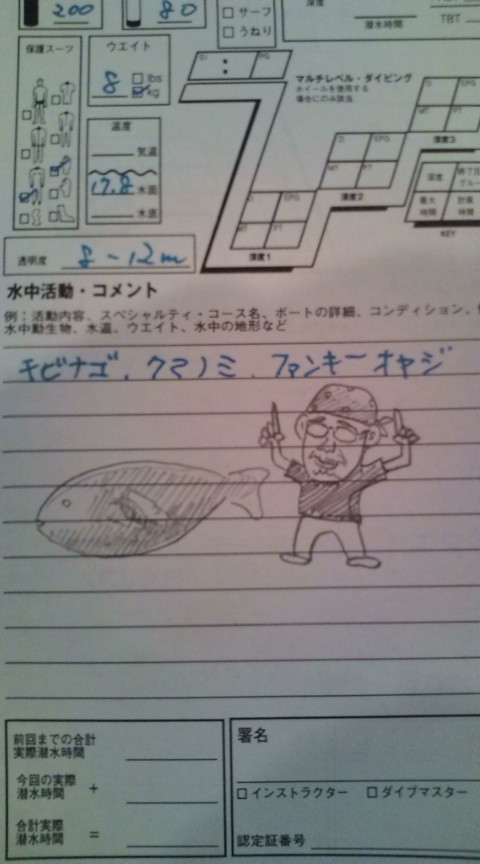 200
80
サーフ
うねり
深度
潜水時間
TBT
保護スーツ
ウエイト
8 lbs
kg
温度
気温
17.8 水面
水底
透明度 8-12m
マルチレベル・ダイビング
ホイールを使用する
場合にのみ該当
深度1
深度2
深度3
KEY
水中活動・コメント
例：活動内容、スペシャルティ・コース名、ボートの詳細、コンディション、
水中動生物、水温、ウエイト、水中の地形など
キビナゴ、クマノミ、ファンキーオヤジ
前回までの合計
実際潜水時間
今回の実際
潜水時間 +
合計実際
潜水時間 =
署名
インストラクター ダイブマスター
認定証番号